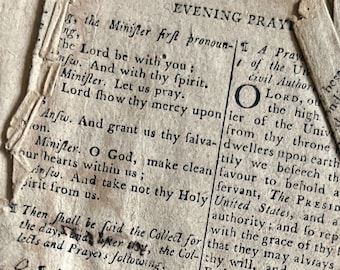 EVENING PRAY
¶ the Miniſter firſt pronoun-
ing,
he Lord be with you;
Anſw. And with thy ſpirit.
Miniſter. Let us pray.
Lord ſhow thy mercy upon
Anſw. And grant us thy ſalva-
Miniſter. O God, make clean
our hearts within us;
Anſw. And take not thy Holy
pirit from us.
¶ Then ſhall be ſaid the Collect for
the day
lects and Prayers following.
¶ A Pray
of the Un
civil Autho
O LORD, ou
the high
ler of the Univer
from thy throne
dwellers upon earth
ly we beſeech the
favour to behold a
ſervant, THE PRESID
United States, and
authority; and ſo rep
with the grace of thy
that they may always
thy will, and